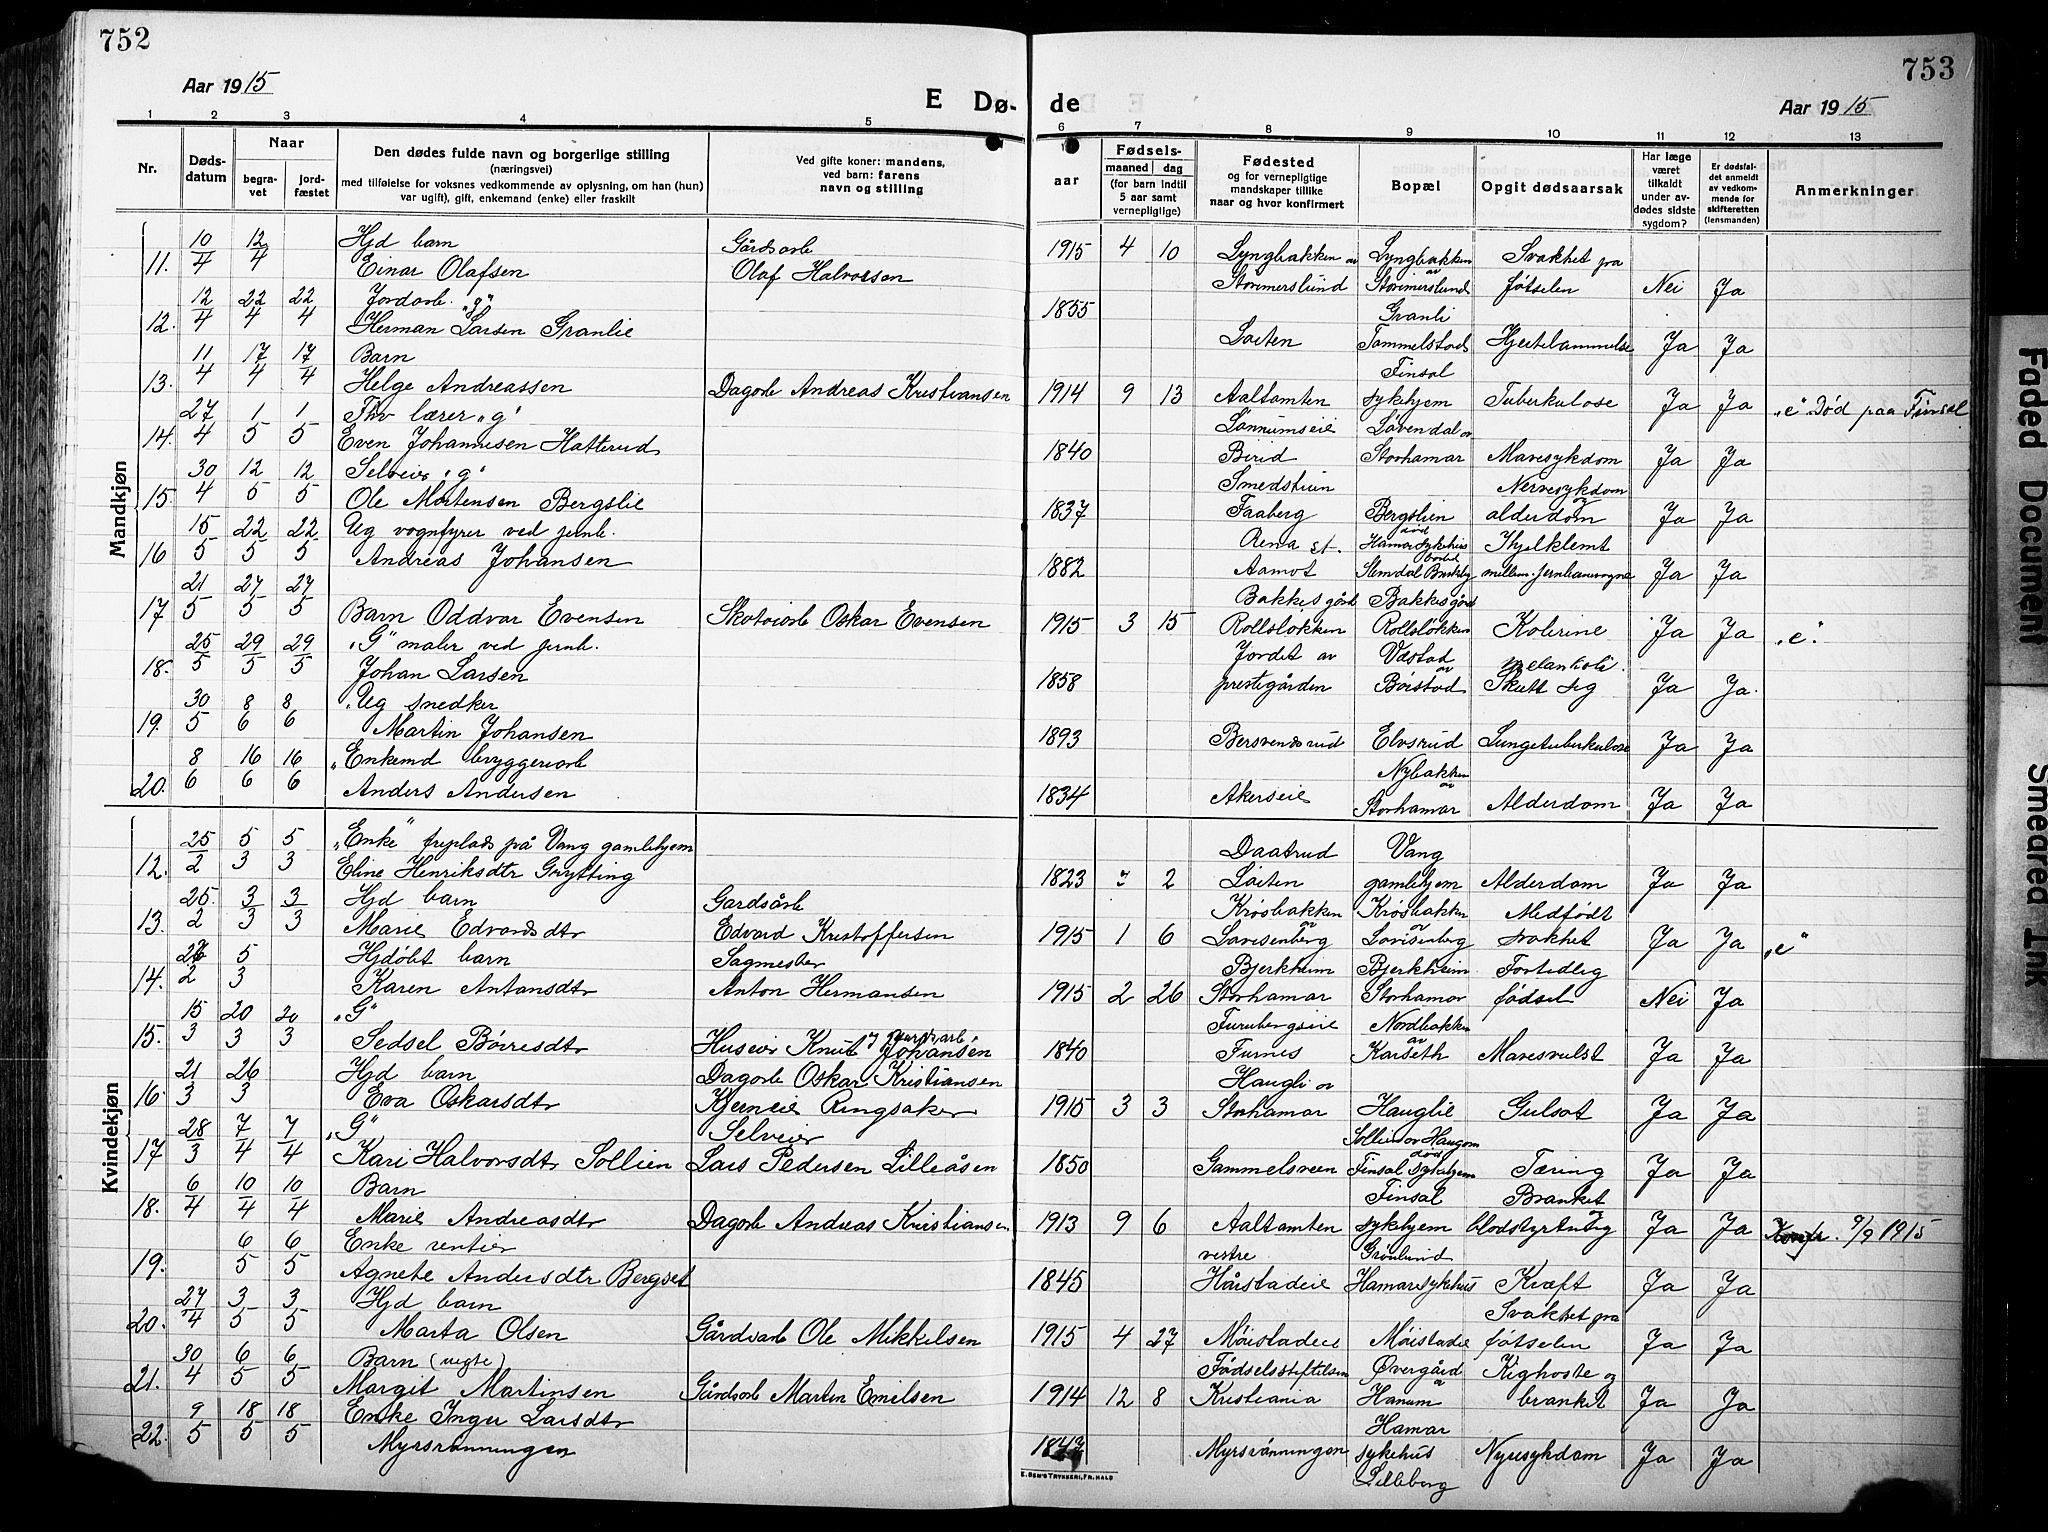 752
753
Aar 1915
E Dø-
de
Aar 1915
1 2 3 4 5 6 7 8 9 10 11 12 13
Nr.
Døds-
datum
Naar
begra-
vet
jord-
fæstet
Den dødes fulde navn og borgerlige stilling
(næringsvei)
med tilføielse for voksnes vedkommende av oplysning, om han (hun)
var ugift), gift, enkemand (enke) eller fraskilt
Ved gifte koner: mandens,
ved barn: farens
navn og stilling
Fødsels-
aar
maaned
dag
(for barn indtil
5 aar samt
vernepligtige)
Fødested
og for vernepligtige
mandskaper tillike
naar og hvor konfirmert
Bopæl
Opgit dødsaarsak
Har læge
været
tilkaldt
under av-
dødes sidste
sygdom?
Er dødsfal-
det anmeldt
av vedkom-
mende for
skifteretten
(lensmanden)
Anmerkninger
Mandkjøn
10 12 Hjd barn Gårdsarb
11. 4 4 Einar Olafsen Olaf Halvorsen 1915 4 10 Lyngbakken av Lyngbakken av Svakhet fra
Storimerslund Storimerslund føtselen Nei Ja
12 22 22 Jordarb. "g"
12. 4 4 4 Herman Larsen Granlie 1855 Granli
Løiten Tommelstad Hjertelammelse Ja Ja
11 17 17 Barn Finsal
13. 4 4 4 Helge Andreassen Dagarb Andreas Kristiansen 1914 9 13 Aaltomten sykehjem Tuberkulose Ja Ja "e" Død paa Finsal
27 1 1 Fhv lærer "g" Lønnumseie Løvendal av
14. 4 5 5 Even Johannesen Hatterud 1840 Birid Storhamar Mavesykdom Ja Ja
30 12 12 Selveier "g" Smedstuen Nervesykdom og
15. 4 5 5 Ole Mortensen Bergslie 1837 Faaberg Bergslien alderdom Ja Ja
15 22 22 Ug vognfyrer ved jernb. Rena st. død Hamar sykehus Ihjelklemt
16 5 5 5 Andreas Johansen 1882 Aamot bosted mellem jernbanevogne Ja Ja
21 27 27 Bakkesgård Bakkesgård
17 5 5 5 Barn Oddvar Evensen Skotøiarb Oskar Evensen 1915 3 15 Rollsløkken Rollsløkken Kolerine Ja Ja "e".
25 29 29 "G" maler ved jernb. Jordet av Vestad av melankoli.
18. 5 5 5 Johan Larsen 1858 prestegården Børstad Skutt sig Ja Ja.
30 8 8 "Ug snedker
19. 5 6 6 Martin Johansen 1893 Bersvendsrud Elvsrud Lungetuberkulose Ja Ja
8 16 16 "Enkemd bryggeriarb Nybakken av
20. 6 6 6 Anders Andersen 1834 Akerseie Storhamar Alderdom Ja Ja
Kvindekjøn
25 5 5 "Enke" friplads på Vang gamlehjem Daatrud Vang
12. 2 3 3 Eline Henriksdtr Grytting 1823 2 Løiten gamlehjem Alderdom Ja Ja
25. 3 3 Hjd barn Gardsårb Krøsbakken av Krøsbakken av Medfødt
13. 2 3 3 Marie Edvardsdtr Edvard Kristoffersen 1915 1 6 Lovisenberg Lovisenberg svakhet Ja Ja "e"
26 5 Hjdøbt barn Sagmester Bjerkheim Bjerkheim Fortidlig
14. 2 3 Karen Antonsdtr Anton Hermansen 1915 2 26 Storhamar Storhamar fødsel Nei Ja
15 20 20 "G" Furubergseie Nordbakken av
15. 3 3 3 Sedsel Børresdtr Huseier Knut Johansen 1840 Furnes Karseth Mavesvulst Ja Ja
21 26 Hjd barn Dagarb Oskar Kristiansen Haugli av
16. 3 3 Eva Oskarsdtr Kjerneie Ringsaker 1915 3 3 Storhamar Hauglie Gulsot Ja Ja
28 7 7 "G" Selveier Sollien av Haugom død
17 3 4 4 Kari Halvorsdtr Sollien Lars Pedersen Lilleåsen 1850 Gammelsveen Finsal sykehjem Tæring Ja Ja
6 10 10 Barn Finsal Brankit og
18. 4 4 4 Marie Andreasdtr Dagarb Andreas Kristiansen 1913 9 6 Aaltomten sykehjem blodstyrtning Ja Ja 9/9 1915
6 6 Enke rentier vestre Grønlund
19. 5 5 Agnete Andersdtr Bergset 1845 Håistadeie Hamarsykehus Kræft Ja Ja
27 3 3 Hjd barn Svakhet fra
20. 4 5 5 Marta Olsen Gårdsarb Ole Mikkelsen 1915 4 27 Møistadeie Møistadeie føtselen Ja Ja
30 6 6 Barn (uegte) Fødselsstiftelsen Øvergård av Kighoste og
21. 4 5 5 Margit Martinsen Gårdsarb Martin Emilsen 1914 12 8 Kristiania Hanum brankit Ja Ja
9 18 18 Enke Inger Larsdtr Hamar
22. 5 5 5 Myrsrønningen Myrsrønningen sykehus Nyresykdom Ja Ja
Lilleberg
E. SEM'S TRYKKERI, FR. HALD
Faded Document
Smeared Ink